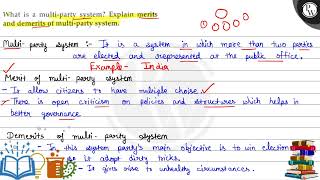 What is a multi-party system? Explain merits
and demerits of multi-party system.
Multi-party system :- It is a system in which more than two parties
are elected and represented at the public office.
Example - India
Merit of multi-party system
- It allow citizens to have multiple choice.
- There is open criticism on policies and structures which helps in
better governance.
Demerits of multi-party system
- In this system party's main objective is to win election
so it adopt dirty tricks.
- It gives rise to unhealthy circumstances.